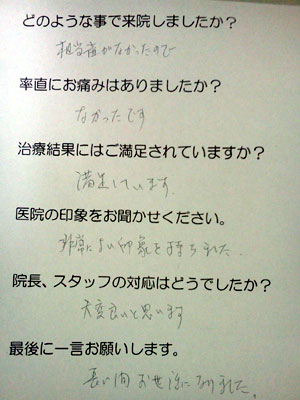 どのような事で来院しましたか？
相当歯がなかったので
率直にお痛みはありましたか？
なかったです
治療結果にはご満足されていますか？
満足しています。
医院の印象をお聞かせください。
非常によい印象を持ちました…
院長、スタッフの対応はどうでしたか？
大変良いと思います
最後に一言お願いします。
長い間お世話になりました。